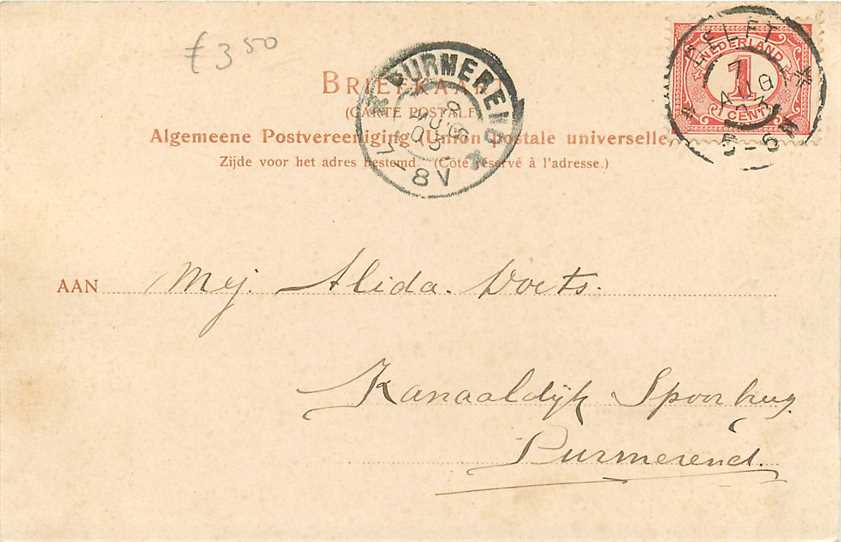 £ 3 50
BRIEFKAA
(CARTE POSTALE)
Algemeene Postvereeniging (Union postale universelle)
Zijde voor het adres bestemd. (Côté réservé à l'adresse.)
PURMEREND
8
AUG
03
7-8V
DELFT
7
AUG
03
5-6
NEDERLAND
1
1 CENT
AAN Mej. Alida. Woets.
Kanaaldijk Spoorbrug
Purmerend.